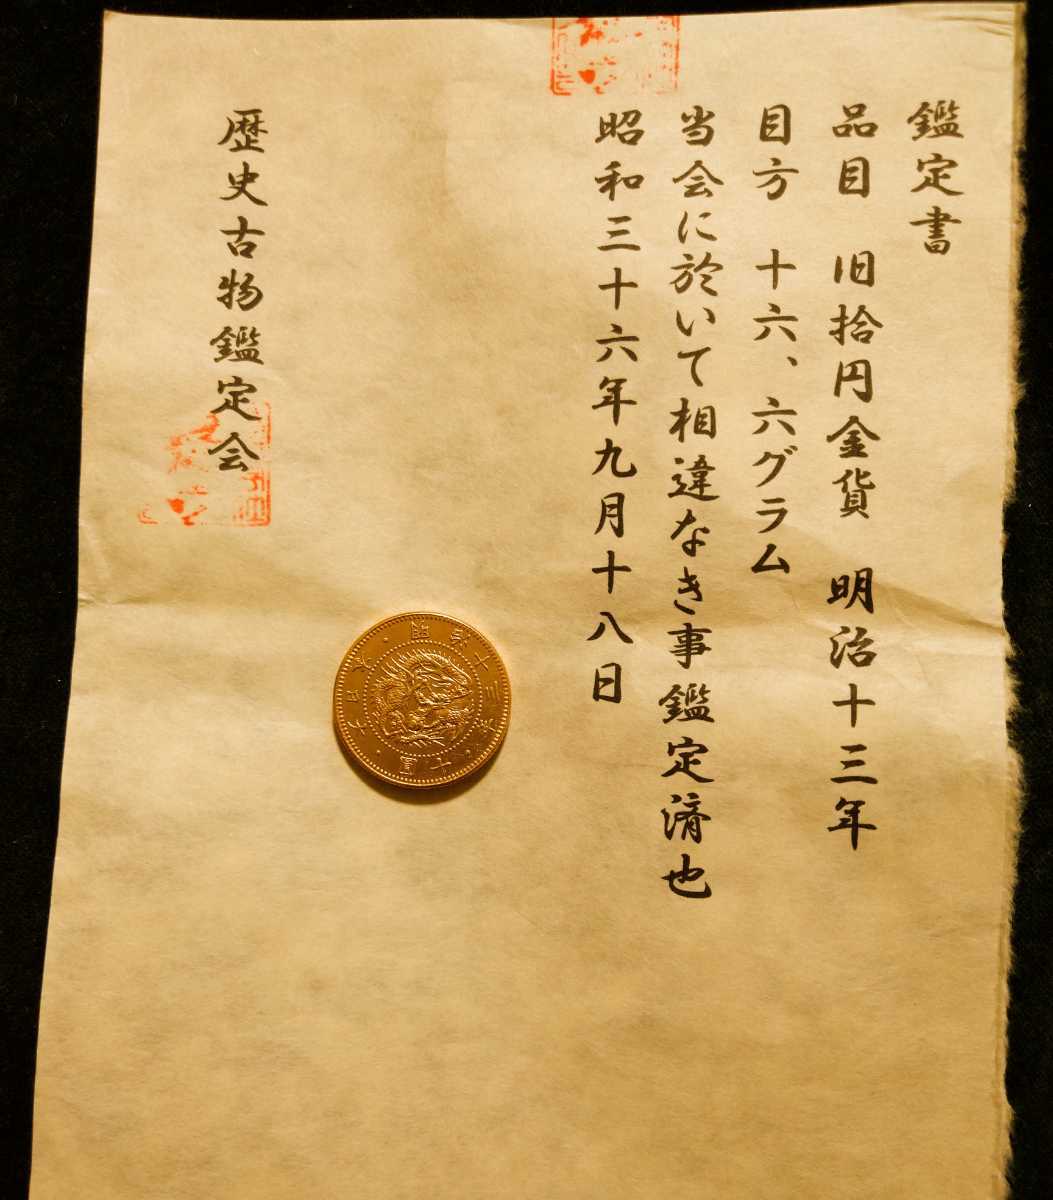 鑑定書
品目 旧拾円金貨 明治十三年
目方 十六、六グラム
当会に於いて相違なき事鑑定済也
昭和三十六年九月十八日
歴史古物鑑定会
大日本・明治十三年・十圓・